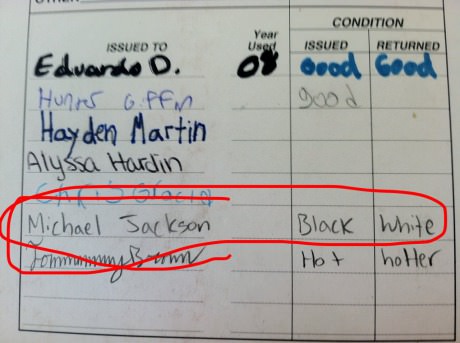 CONDITION
ISSUED TO Year Used ISSUED RETURNED
Eduardo D. 08 Good Good
good
Hayden Martin
Alyssa Hardin
Michael Jackson Black White
Hot hotter